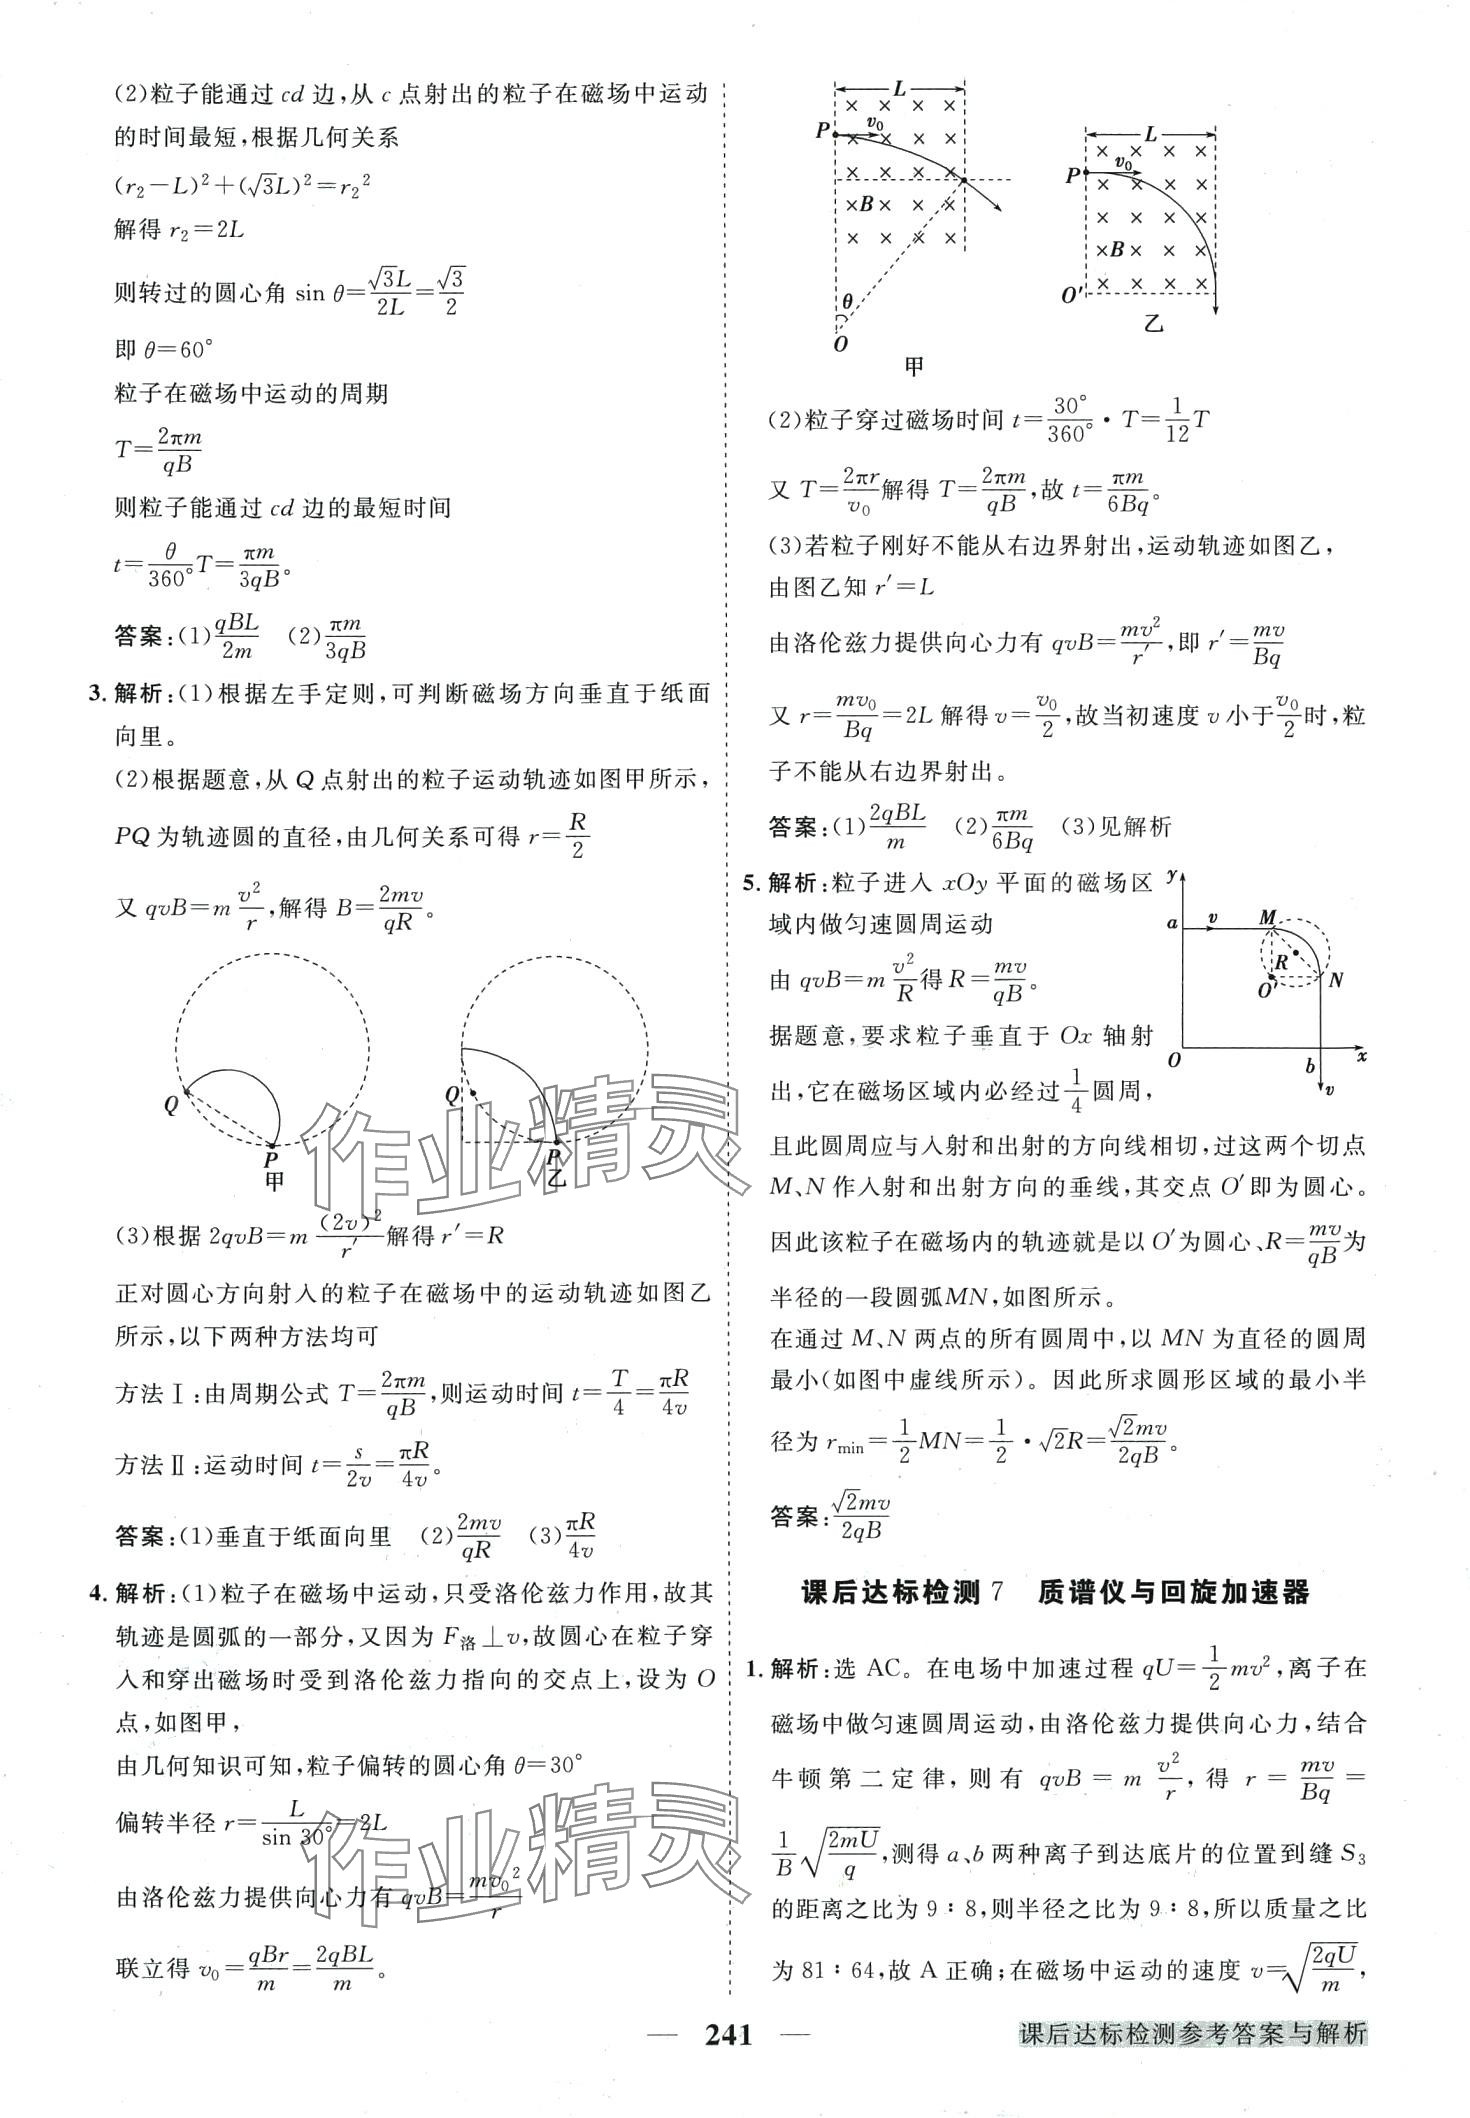 (2)粒子能通过 cd 边,从 c 点射出的粒子在磁场中运动
的时间最短,根据几何关系
(r₂－L)²＋(√3L)²＝r₂²
解得 r₂＝2L
则转过的圆心角 sin θ＝√3L/2L＝√3/2
即 θ＝60°
粒子在磁场中运动的周期
T＝2πm/qB
则粒子能通过 cd 边的最短时间
t＝θ/360°T＝πm/3qB。
答案:(1)qBL/2m (2)πm/3qB
3. 解析:(1)根据左手定则,可判断磁场方向垂直于纸面
向里。
(2)根据题意,从 Q 点射出的粒子运动轨迹如图甲所示,
PQ 为轨迹圆的直径,由几何关系可得 r＝R/2
又 qvB＝m v²/r,解得 B＝2mv/qR。
Q
P
甲
Q
P
乙
(3)根据 2qvB＝m (2v)²/r′解得 r′＝R
正对圆心方向射入的粒子在磁场中的运动轨迹如图乙
所示,以下两种方法均可
方法Ⅰ:由周期公式 T＝2πm/qB,则运动时间 t＝T/4＝πR/4v
方法Ⅱ:运动时间 t＝s/2v＝πR/4v。
答案:(1)垂直于纸面向里 (2)2mv/qR (3)πR/4v
4. 解析:(1)粒子在磁场中运动,只受洛伦兹力作用,故其
轨迹是圆弧的一部分,又因为 F洛⊥v,故圆心在粒子穿
入和穿出磁场时受到洛伦兹力指向的交点上,设为 O
点,如图甲,
由几何知识可知,粒子偏转的圆心角 θ＝30°
偏转半径 r＝L/sin 30°＝2L
由洛伦兹力提供向心力有 qv₀B＝mv₀²/r
联立得 v₀＝qBr/m＝2qBL/m。
L
P
v₀
B
θ
O
甲
L
P
v₀
B
O′
乙
(2)粒子穿过磁场时间 t＝30°/360°·T＝1/12T
又 T＝2πr/v₀解得 T＝2πm/qB,故 t＝πm/6Bq。
(3)若粒子刚好不能从右边界射出,运动轨迹如图乙,
由图乙知 r′＝L
由洛伦兹力提供向心力有 qvB＝mv²/r′,即 r′＝mv/Bq
又 r＝mv₀/Bq＝2L 解得 v＝v₀/2,故当初速度 v 小于v₀/2时,粒
子不能从右边界射出。
答案:(1)2qBL/m (2)πm/6Bq (3)见解析
5. 解析:粒子进入 xOy 平面的磁场区
域内做匀速圆周运动
由 qvB＝m v²/R得 R＝mv/qB。
据题意,要求粒子垂直于 Ox 轴射
出,它在磁场区域内必经过1/4圆周,
y
a
v
M
R
O′
N
O
b
x
v
且此圆周应与入射和出射的方向线相切,过这两个切点
M、N 作入射和出射方向的垂线,其交点 O′即为圆心。
因此该粒子在磁场内的轨迹就是以 O′为圆心、R＝mv/qB为
半径的一段圆弧MN,如图所示。
在通过 M、N 两点的所有圆周中,以 MN 为直径的圆周
最小(如图中虚线所示)。因此所求圆形区域的最小半
径为 rmin＝1/2 MN＝1/2·√2R＝√2mv/2qB。
答案:√2mv/2qB
课后达标检测 7 质谱仪与回旋加速器
1. 解析:选 AC。在电场中加速过程 qU＝1/2 mv²,离子在
磁场中做匀速圆周运动,由洛伦兹力提供向心力,结合
牛顿第二定律,则有 qvB＝m v²/r,得 r＝mv/Bq＝
1/B √(2mU/q),测得 a、b 两种离子到达底片的位置到缝 S₃
的距离之比为 9∶8,则半径之比为 9∶8,所以质量之比
为 81∶64,故 A 正确;在磁场中运动的速度 v＝√(2qU/m),
— 241 —
课后达标检测参考答案与解析
作业精灵
作业精灵